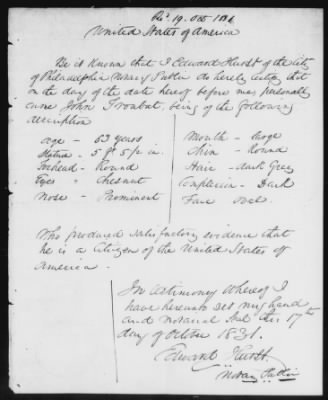 19. Oct 18
United States of America
Be it Known that I Edward Hurst of the City
of Philadelphia Notary Public do hereby certify that
on the day of the date hereof before me personally
came John Trowbat, being of the following
description
age - 53 years
Statua - 5 ft 5 1/2 in.
Forehead - Round
Eyes " Chesnut
Nose - Prominent
Mouth - Huge
Chin - Round
Hair - dark Grey
Complexion - Dark
Face oval.
Who produced satisfactory evidence that
he is a Citizen of the United States of
America.
In testimony whereof I
have hereunto set my hand
and Notarial Seal this 17th
day of October 1831.
Edward Hurst.
Notary Public